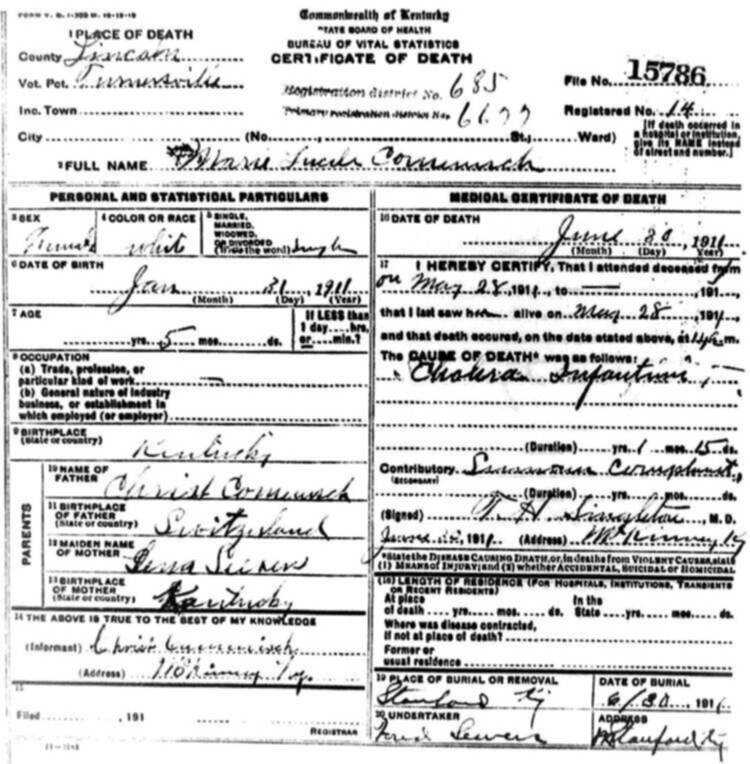 FORM V. S. 1-
Commonwealth of Kentucky
STATE BOARD OF HEALTH
BUREAU OF VITAL STATISTICS
CERTIFICATE OF DEATH
1 PLACE OF DEATH
County Lincoln
Vot. Pct. Turnersville
Inc. Town
City (No. St.; Ward)
Registration district No. 685
Primary registration district No. 6677
File No. 15786
Registered No. 14
[If death occurred in a hospital or institution, give its NAME instead of street and number.]
2 FULL NAME Marie
PERSONAL AND STATISTICAL PARTICULARS
3 SEX Female
4 COLOR OR RACE whit
5 SINGLE, MARRIED, WIDOWED, OR DIVORCED (Write the word) Single
6 DATE OF BIRTH
Jan 31 1911
(Month) (Day) (Year)
7 AGE
yrs. 5 mos. ds.
If LESS than 1 day....hrs. or....min.?
8 OCCUPATION
(a) Trade, profession, or particular kind of work
(b) General nature of industry business, or establishment in which employed (or employer)
9 BIRTHPLACE
(State or country) Kentucky
PARENTS
10 NAME OF FATHER Christ
11 BIRTHPLACE OF FATHER
(State or country) Switzerland
12 MAIDEN NAME OF MOTHER Lena
13 BIRTHPLACE OF MOTHER
(State or country) Kentucky
14 THE ABOVE IS TRUE TO THE BEST OF MY KNOWLEDGE
(Informant) Christ
(Address) McKinney Ky.
15
Filed , 191
MEDICAL CERTIFICATE OF DEATH
16 DATE OF DEATH
June 30, 1911
(Month) (Day) (Year)
17 I HEREBY CERTIFY, That I attended deceased from
on May 28, 1911, to — , 191
that I last saw alive on May 28, 1911
and that death occured, on the date stated above, at m.
The CAUSE OF DEATH* was as follows:
Cholera Infantum
(Duration) yrs. 1 mos. 15 ds.
Contributory
(SECONDARY)
(Duration) yrs. mos. ds.
(Signed) T. H. Singleton, M. D.
June , 1911 (Address) McKinney Ky
*State the DISEASE CAUSING DEATH, or, in deaths from VIOLENT CAUSES, state
(1) MEANS OF INJURY; and (2) whether ACCIDENTAL, SUICIDAL or HOMICIDAL
(18) LENGTH OF RESIDENCE (FOR HOSPITALS, INSTITUTIONS, TRANSIENTS OR RECENT RESIDENTS)
At place of death yrs. mos. ds. In the State yrs. mos. ds.
Where was disease contracted,
if not at place of death?
Former or
usual residence
19 PLACE OF BURIAL OR REMOVAL
Stanford Ky
DATE OF BURIAL
6/30, 1911
20 UNDERTAKER
ADDRESS
Stanford Ky